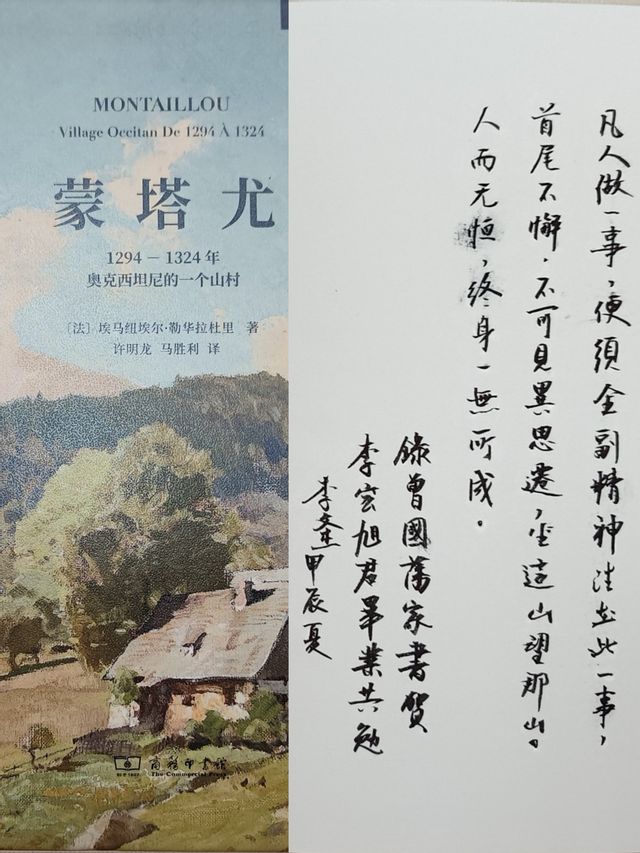 MONTAILLOU
Village Occitan De 1294 À 1324
蒙塔尤
1294 – 1324 年
奥克西坦尼的一个山村
〔法〕埃马纽埃尔·勒华拉杜里 著
许明龙 马胜利 译
商務印書館
The Commercial Press
凡人做一事，便須全副精神注在此一事，
首尾不懈，不可見異思遷，坐這山望那山。
人而无恒，終身一無所成。
錄曾國藩家書賀
李宏旭君畢業共勉
李文杰甲辰夏